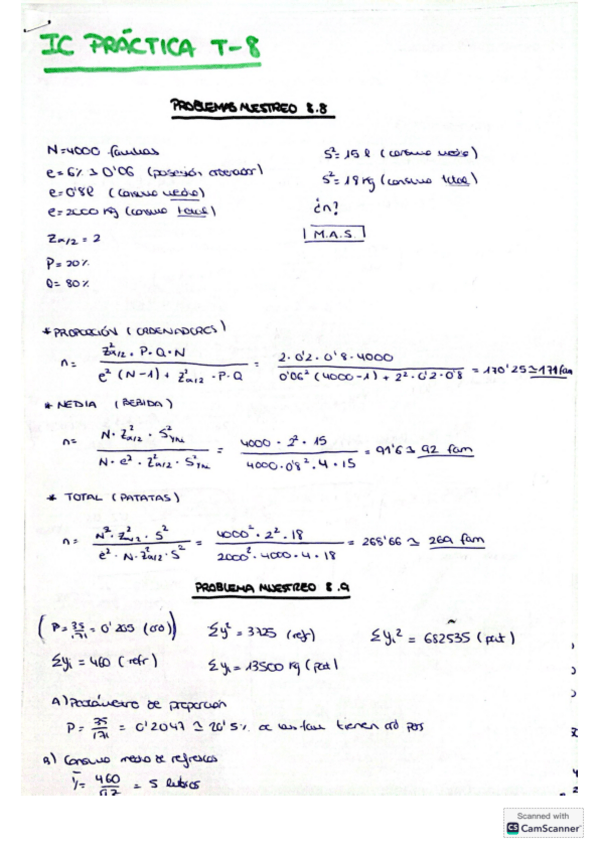 IC PRÁCTICA T-8
PROBLEMAS MUESTREO 8.8
N=4000 familias
S²= 15 l (consumo medio)
e= 6% → 0'06 (posesión ordenador)
S²= 18 kg (consumo total)
e= 0'8l (consumo medio)
¿n?
e= 2000 kg (consumo total)
M.A.S.
Zα/2 = 2
P= 20%
Q= 80%
* PROPORCIÓN (ORDENADORES)
n= Z²α/2 · P · Q · N / e² (N-1) + Z²α/2 · P · Q = 2 · 0'2 · 0'8 · 4000 / 0'06² (4000-1) + 2² · 0'2 · 0'8 = 170'25 ≃ 171 fam
* MEDIA (BEBIDA)
n= N · Z²α/2 · S² / N · e² · Z²α/2 · S² = 4000 · 2² · 15 / 4000 · 0'8² · 4 · 15 = 91'6 → 92 fam
* TOTAL (PATATAS)
n= N² · Z²α/2 · S² / e² · N · Z²α/2 · S² = 4000² · 2² · 18 / 2000² · 4000 · 4 · 18 = 268'66 → 269 fam
PROBLEMA MUESTREO 8.9
(P= 35/171 = 0'205 (ord)) Σy² = 3725 (refr) Σyi² = 682535 (pat)
Σyi = 460 (refr) Σyi = 13500 kg (pat)
A) Parámetro de proporción
P= 35/171 = 0'2047 ≃ 20'5% de las fam tienen ord
B) Consumo medio de refrescos
ȳ= 460/92 = 5 litros
Scanned with
CS CamScanner